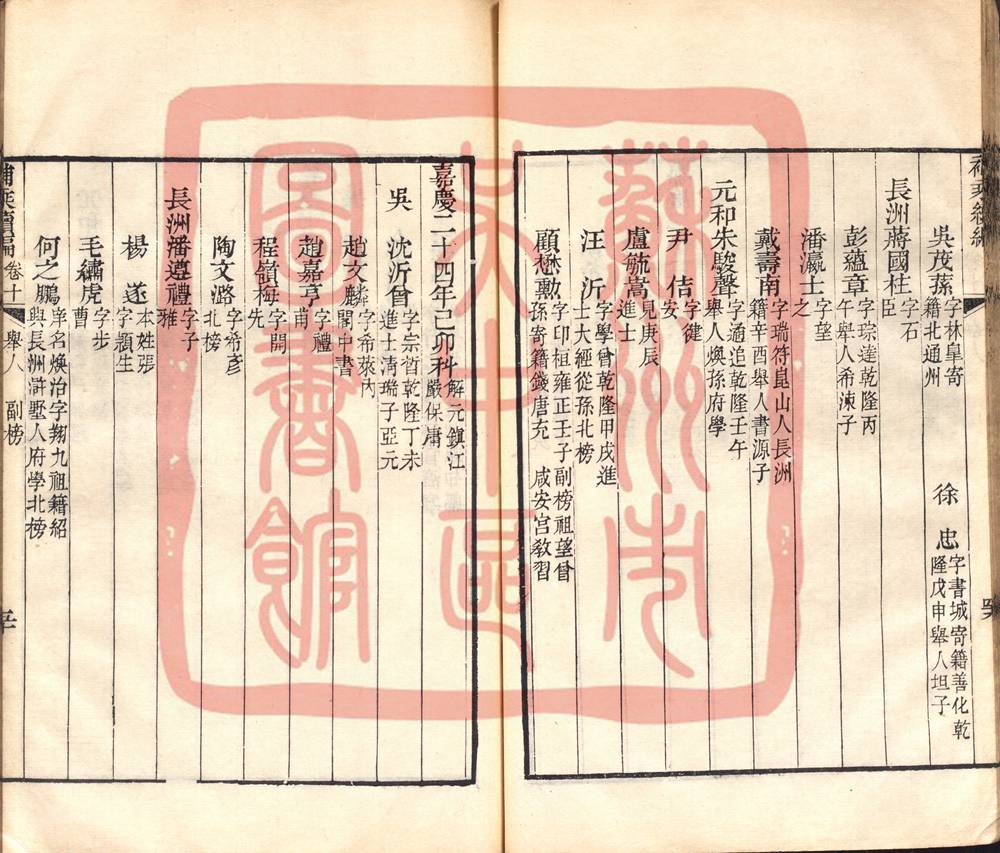 吳茂蓀 字林皐寄籍北通州 徐忠 字書城寄籍善化乾隆戊申舉人坦子
長洲蔣國柱 字石臣
彭蘊章 字琮達乾隆丙午舉人希涑子
潘瀛士 字望之
戴壽南 字瑞符崑山人長洲籍辛酉舉人書源子
元和朱駿聲 字通追乾隆壬午舉人煥孫府學
尹佶 字健安
盧毓嵩 見庚辰進士
汪沂 字學曾乾隆甲戌進士大經從孫北榜
顧懋勳 字印桓雍正壬子副榜祖望曾孫寄籍錢唐充咸安宮教習
嘉慶二十四年己卯科 解元鎮江嚴保庸
吳 沈沂曾 字宗晳乾隆丁未進士淸瑞子亞元
趙文麟 字希萊內閣中書
趙嘉亨 字禮甫
程嶺梅 字開先
陶文潞 字裕彥北榜
長洲潘遵禮 字子雅
楊遂 本姓張字穎生
毛繡虎 字步曹
何之鵬 字翔九祖籍紹興長洲滸墅人府學北榜
卷十 舉人 副榜